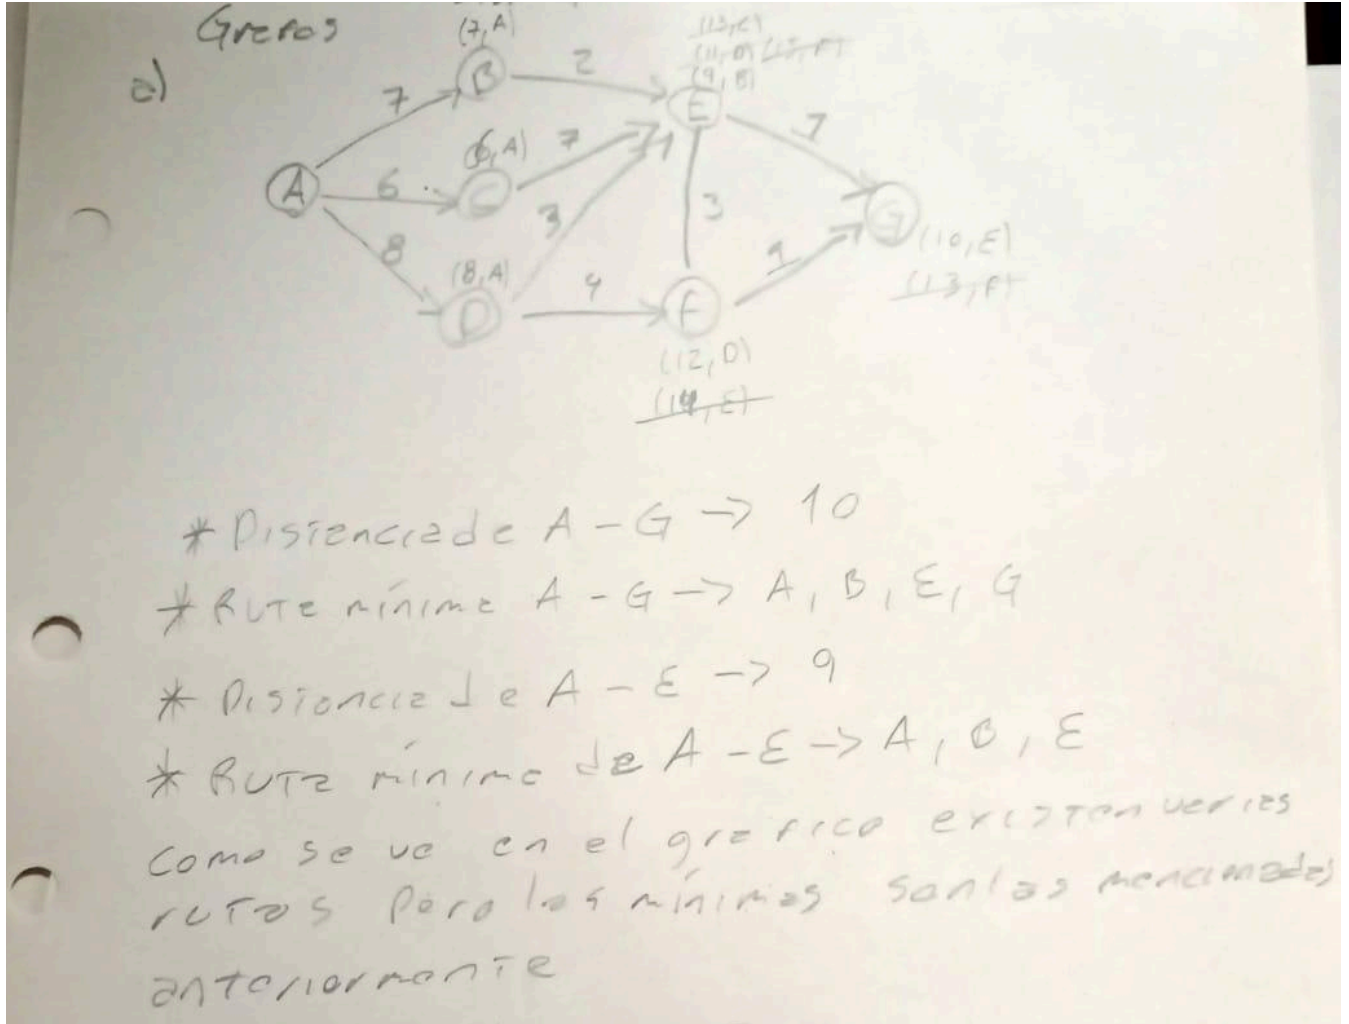 Grafos
a)
(7,A)
(13,C)
(11,D) (15,F)
(9,B)
B
2
E
7
7
(6,A)
7
A
6
C
3
3
G
(10,E)
(13,F)
8
(8,A)
D
4
F
1
(12,D)
(14,E)
* Distancia de A - G -> 10
* Ruta mínima A - G -> A, B, E, G
* Distancia de A - E -> 9
* Ruta mínima de A - E -> A, B, E
Como se ve en el grafico existen varias
rutas pero las mínimas son las mencionadas
anteriormente